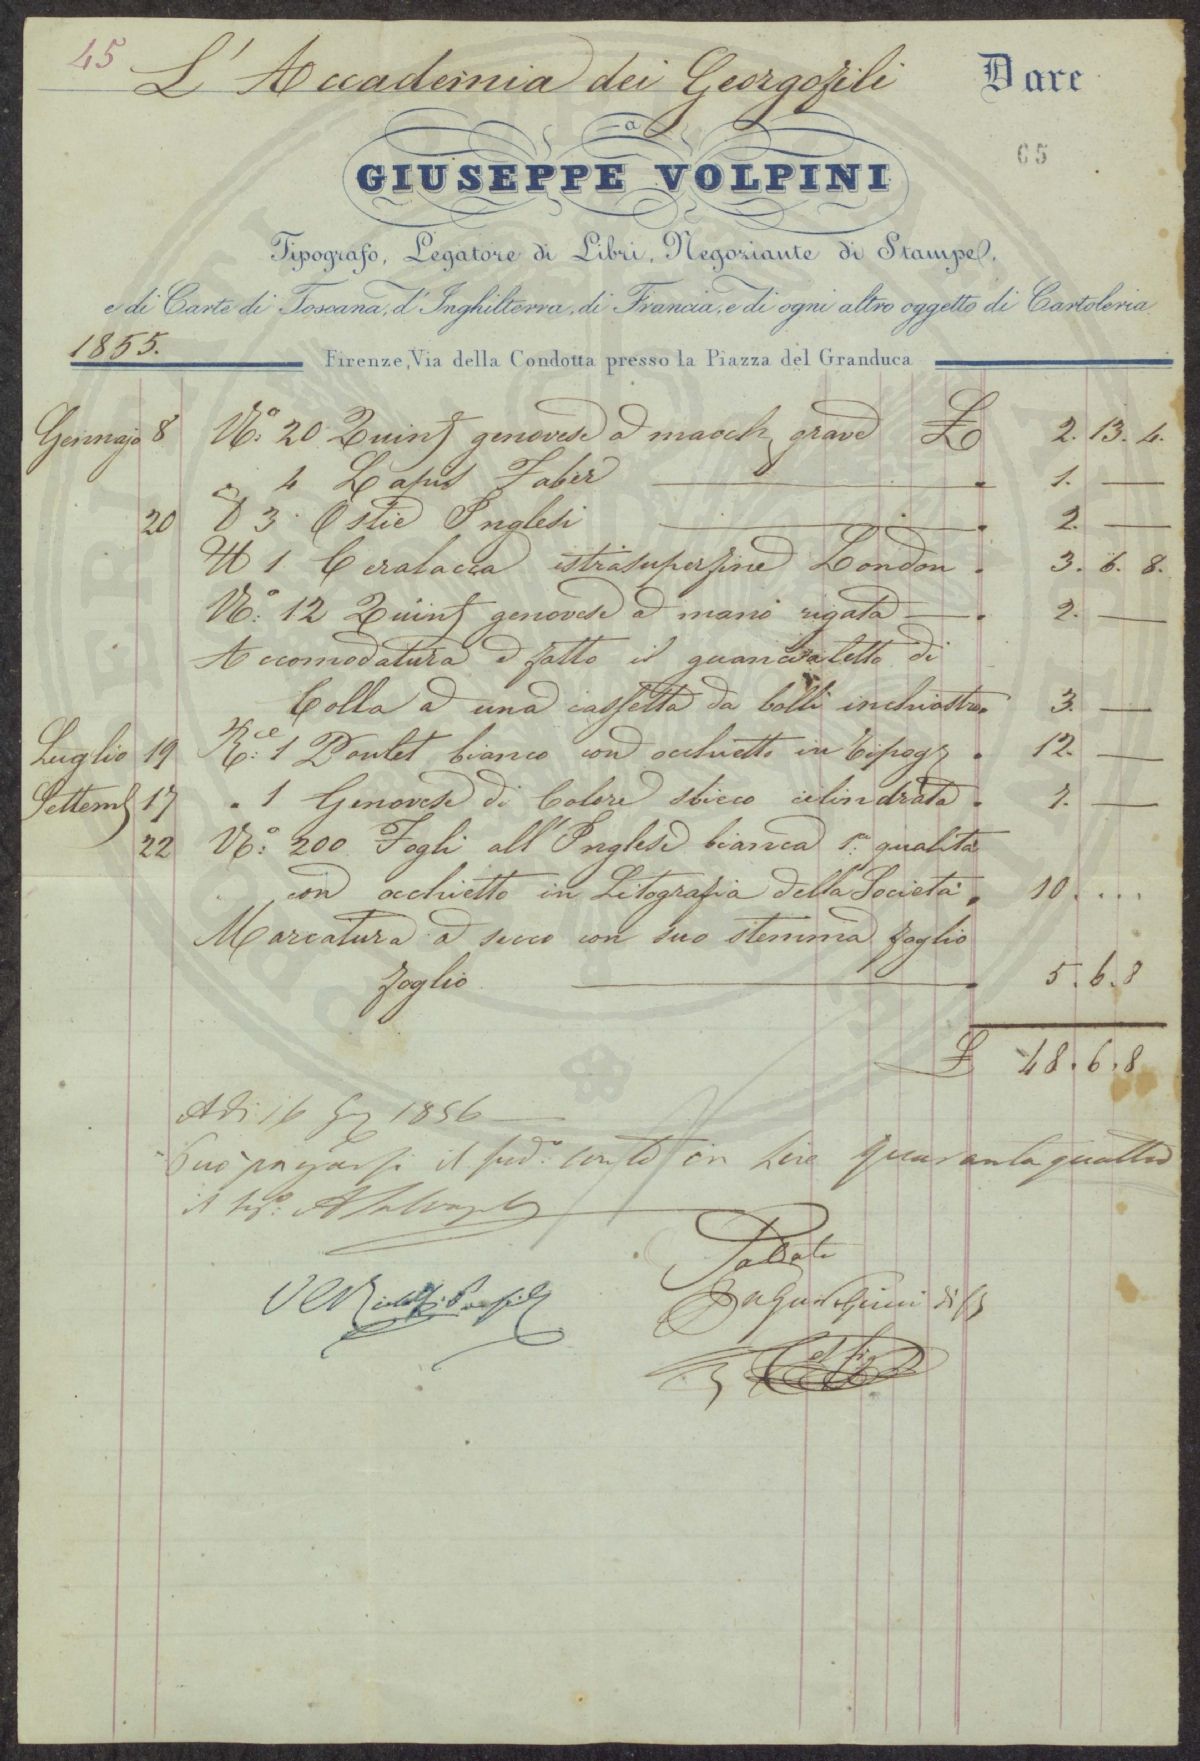 45
L'Accademia dei Georgofili Dare
a
65
GIUSEPPE VOLPINI
Tipografo, Legatore di Libri, Negoziante di Stampe,
e di Carte di Toscana, d'Inghilterra, di Francia, e di ogni altro oggetto di Cartoleria
1855.
Firenze, Via della Condotta presso la Piazza del Granduca
Gennajo 8 N.º 20 Quint genovese a macch grave £ 2. 13. 4.
4 Lapis Faber 1. —
20 3 Ostie Inglesi 2. —
℔ 1 Ceralacca istrasuperfine London 3. 6. 8.
N.º 12 Quint genovese a mano rigata — 2. —
Accomodatura e fatto il guancialetto di
Colla a una cassetta da bolli inchiostro 3. —
Luglio 19 1 Poulet bianco con occhietto in tipog 12. —
Settemb 17 1 Genovese di Colore sbieco cilindrata 7. —
22 N.º 200 Fogli all'Inglese bianca 1ª qualità
con occhietto in Litografia della Società 10. . . .
Marcatura a secco con suo stemma foglio
foglio 5. 6. 8
£ 48. 6. 8
Adi 16 1856
Può pagarsi il sud.º conto in Lire quarantaquattro
il